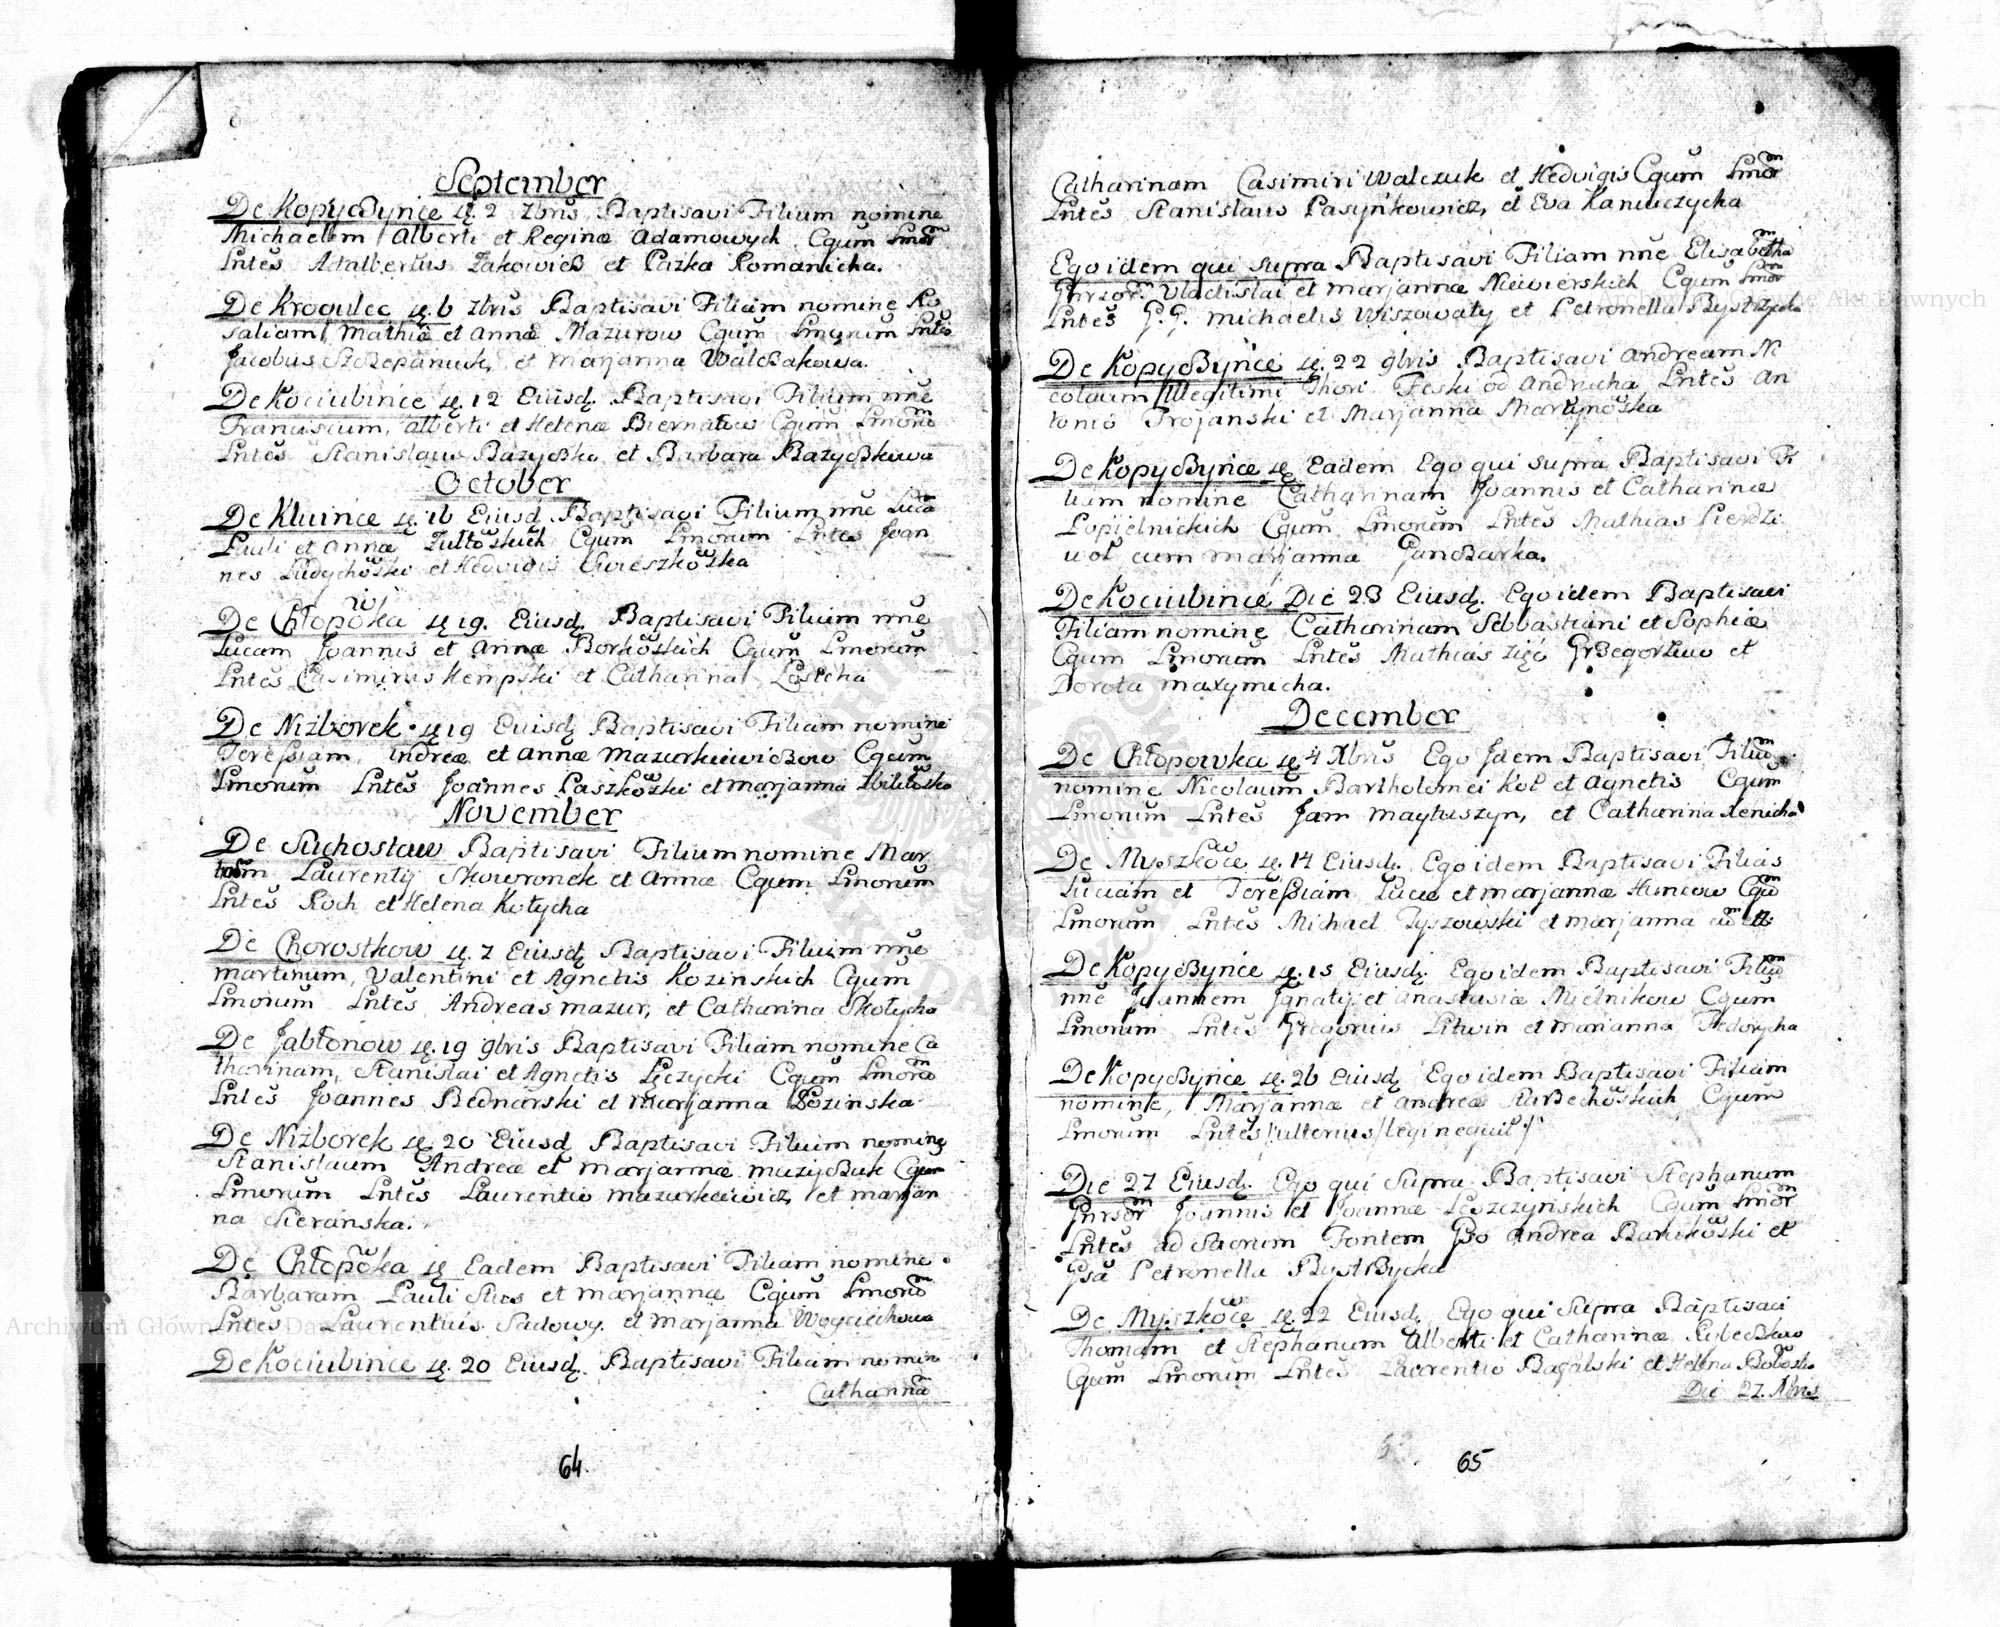 September
De Kopyczyńce d. 2 7bris Baptisavi Filium nomine
Michaelem Alberti et Reginæ Adamowych Cgum Lmor̃m
Lntes Adalbertus Zakowicz et Pazka Romanicha.
De Krogulec d. 6 7bris Baptisavi Filiam nomine Ro
saliam, Mathiæ et Annæ Mazurow Cgum Lmorum Lntes
Jacobus Szczepaniuk, et Marjanna Walczakowa.
De Kociubince d. 12 Eiusd. Baptisavi Filium nñe
Franciscum, Alberti et Helenæ Biernatow Cgum Lmorũ
Lntes Stanislaus Bazyczko et Barbara Bazyczkowa
October
De Kluince d. 16 Eiusd. Baptisavi Filium nñe Lucã
Pauli et Annæ Cgum Lmorum Lntes Joan
nes et Hedvigis
De Chłopowka d. 19. Eiusd. Baptisavi Filium nñe
Lucam Joannis et Annæ Borkowskich Cgum Lmorum
Lntes Casimirus Kempski et Catharina
De Niżborek d. 19 Eiusd Baptisavi Filiam nomine
Teressiam, Andreæ et Annæ Mazurkiewiczow Cgum
Lmorum Lntes Joannes Paszkowski et Marjanna
November
De Suchostaw Baptisavi Filium nomine Mar
Laurentij Skowronek et Annæ Cgum Lmorum
Lntes Roch et Helena Kotycha
De Chorostkow d. 7 Eiusd Baptisavi Filium nñe
Martinum, Valentini et Agnetis Kozinskich Cgum
Lmorum Lntes Andreas Mazur, et Catharina Skotycha
De Jabłonow d. 19 9bris Baptisavi Filiam nomine Ca
tharinam, Stanislai et Agnetis Łęczycki Cgum Lmorũ
Lntes Joannes Bednarski et Marjanna Łozinska
De Niżborek d. 20 Eiusd Baptisavi Filium nomine
Stanislaum Andreæ et Marjannæ Muzyczuk Cgum
Lmorum Lntes Laurentio Mazurkiewicz, et Marjan
na Sieranska.
De Chłopowka d. Eadem Baptisavi Filiam nomine
Barbaram Pauli et Marjannæ Cgum Lmorũ
Lntes Laurentius Sadowy et Marjanna Woyciechowa
De Kociubince d. 20 Eiusd. Baptisavi Filiam nomin
Catharinã
64.
Catharinam Casimiri Walczuk et Hedvigis Cgum Lmor̃
Lntes Stanislaus Pasyńkowicz, et Eva Kaniuczycha
Ego idem qui supra Baptisavi Filiam nñe Elisabetha
Gnrsor̃ Vladislai et Marjannæ Niewierskich Cgum Lmor̃
Lntes G. G. Michaelis Wiszowaty et Petronella
De Kopyczyńce d. 22 9bris Baptisavi Andream Ni
colaum Illegitimi Thori Feski od Andrucha Lntes An
tonio Trojanski et Marjanna
De Kopyczyńce d. Eadem Ego qui supra Baptisavi Fi
liam nomine Catharinam Joannis et Catharinæ
Popielnickich Cgum Lmorum Lntes Mathias Pierdzi
woł cum Marjanna Ganczarka.
De Kociubince Die 23 Eiusd. Ego idem Baptisavi
Filiam nomine Catharinam Sebbastiani et Sophiæ
Cgum Lmorum Lntes Mathias zięć Grzegorzuw et
Dorota Maxymicha.
December
De Chłopowka d. 4 Xbris Ego Idem Baptisavi Filiũ
nomine Nicolaum Bartholomei Koł et Agnetis Cgum
Lmorum Lntes Jam Maytuszyn, et Catharina Xenicha
De Myszkowce d. 14 Eiusd. Ego idem Baptisavi Filias
Luciam et Teressiam Lucæ et Marjannæ Huncow Cgũ
Lmorum Lntes Michael Tyszowski et Marjanna
De Kopyczyńce d. 15 Eiusd. Ego idem Baptisavi Filiũ
nñe Joannem Ignatij et Anastasiæ Mielnikow Cgum
Lmorum Lntes Gregorius Litwin et Marianna Fedorycha
De Kopyczyńce d. 26 Eiusd Ego idem Baptisavi Filiam
nomine, Marjannæ et Andreæ Cgum
Lmorum Lntes /:ulterius legi nequit:/
Die 27 Eiusd. Ego qui Supra Baptisavi Stephanum
Gnrsor̃ Joannis et Joannæ Leszczyńskich Cgum Lmor̃
Lntes ad Sacrum Fontem Gso Andrea et
Gsa Petronella Bystrzycka
De Myszkowce d. 22 Eiusd. Ego qui Supra Baptisavi
Thomam et Stephanum Alberti et Catharinæ
Cgum Lmorum Lntes Laurentio Bagalski et Helena
Die 27. Xbris
65
Archiwum Główne Akt Dawnych